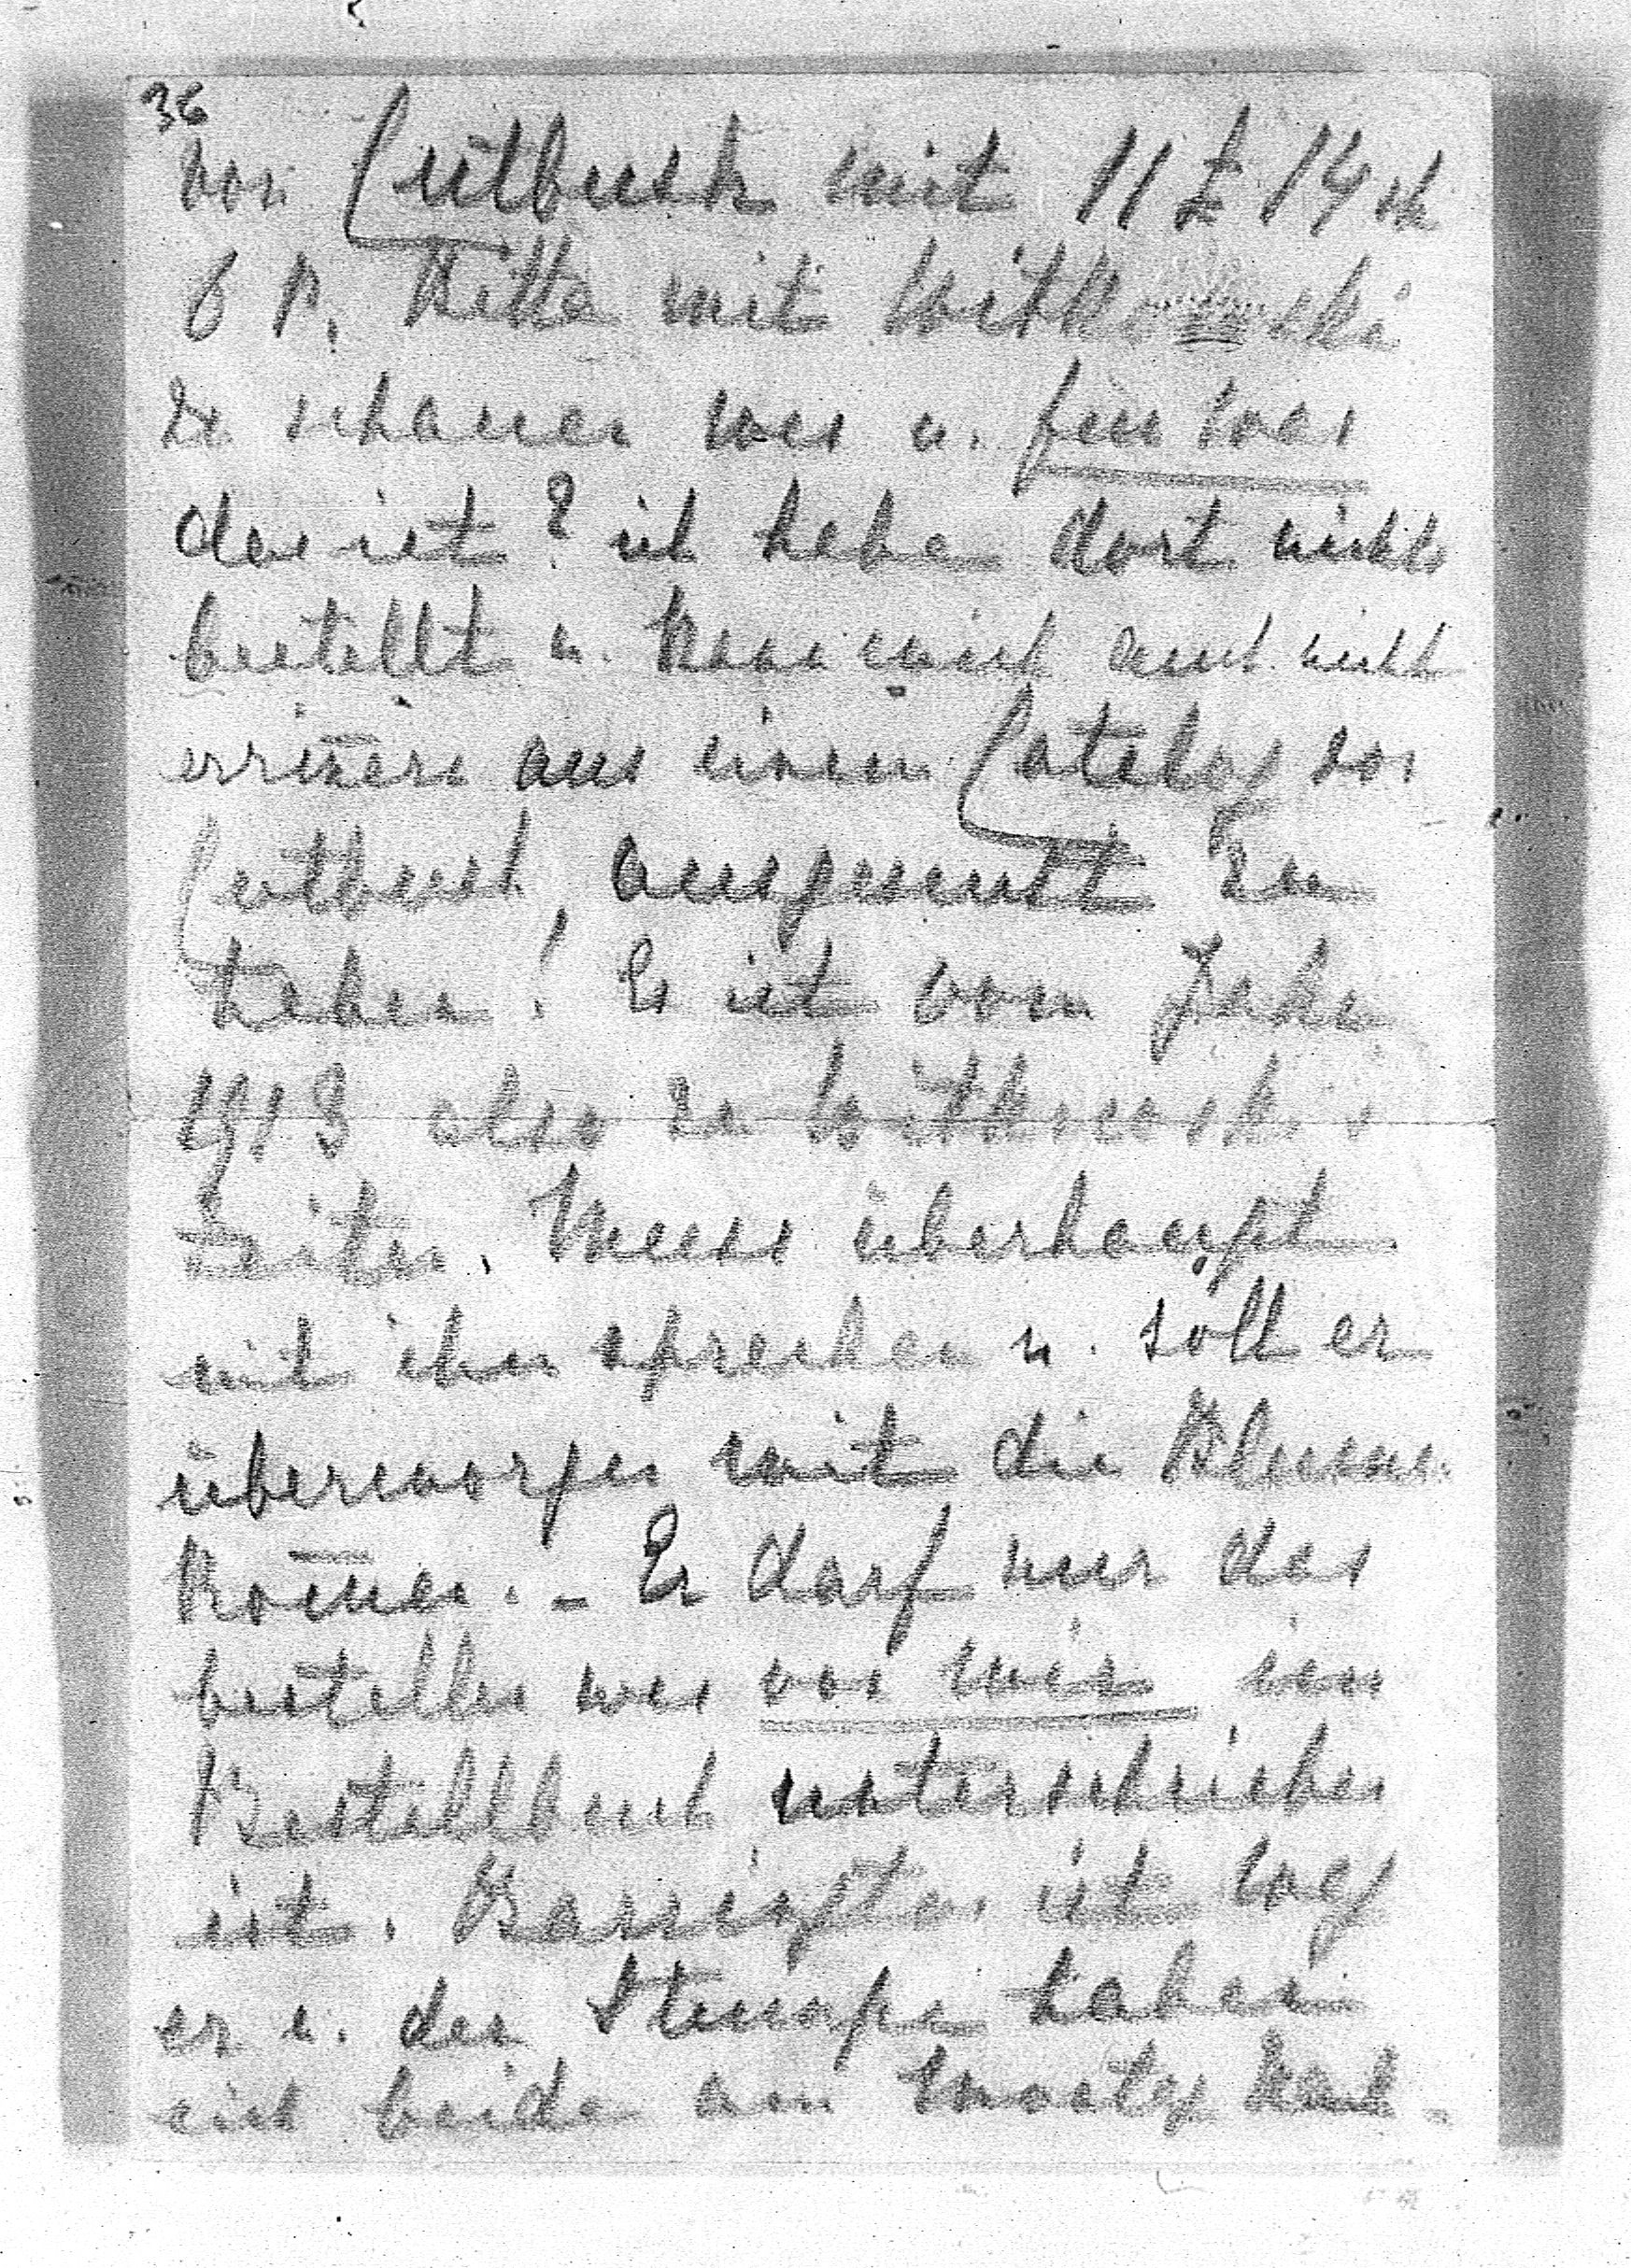 36
von Cutbush mit 11 £ 14 sh
6 P. Bitte mit Witkowski
zu schauen was u. für was
das ist? ich habe dort nichts
bestellt u. kann mich auch nicht
erriñern aus einen Catalog von
Cutbush, ausgesucht zu
haben! Es ist vom Jahr
1913 also zu Witkowski
Zeiten. Muss überhaupt
mit ihm sprechen u. soll er
überworfen mit die Blumen
kom̄en. – Er darf nur das
bestellen was von mir im
Bestellbuch unterschrieben
ist. Barrington ist weg
er u. der Stumpe haben
sich beide am